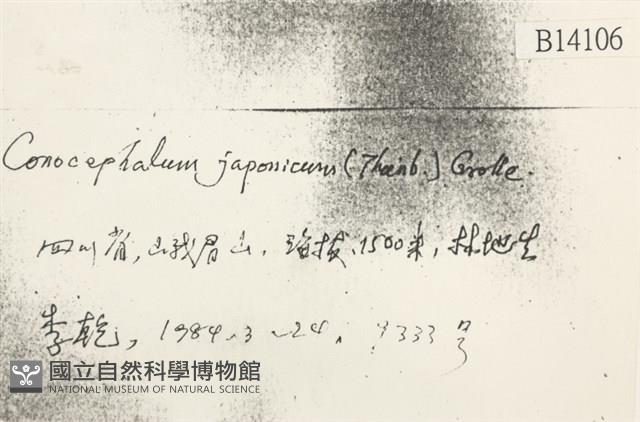 B14106
Conocephalum japonicum (Thunb.) Grolle.
四川省,峨眉山,海拔1500米,林地生
李乾,1984.3.24. 3333号
國立自然科學博物館
NATIONAL MUSEUM OF NATURAL SCIENCE